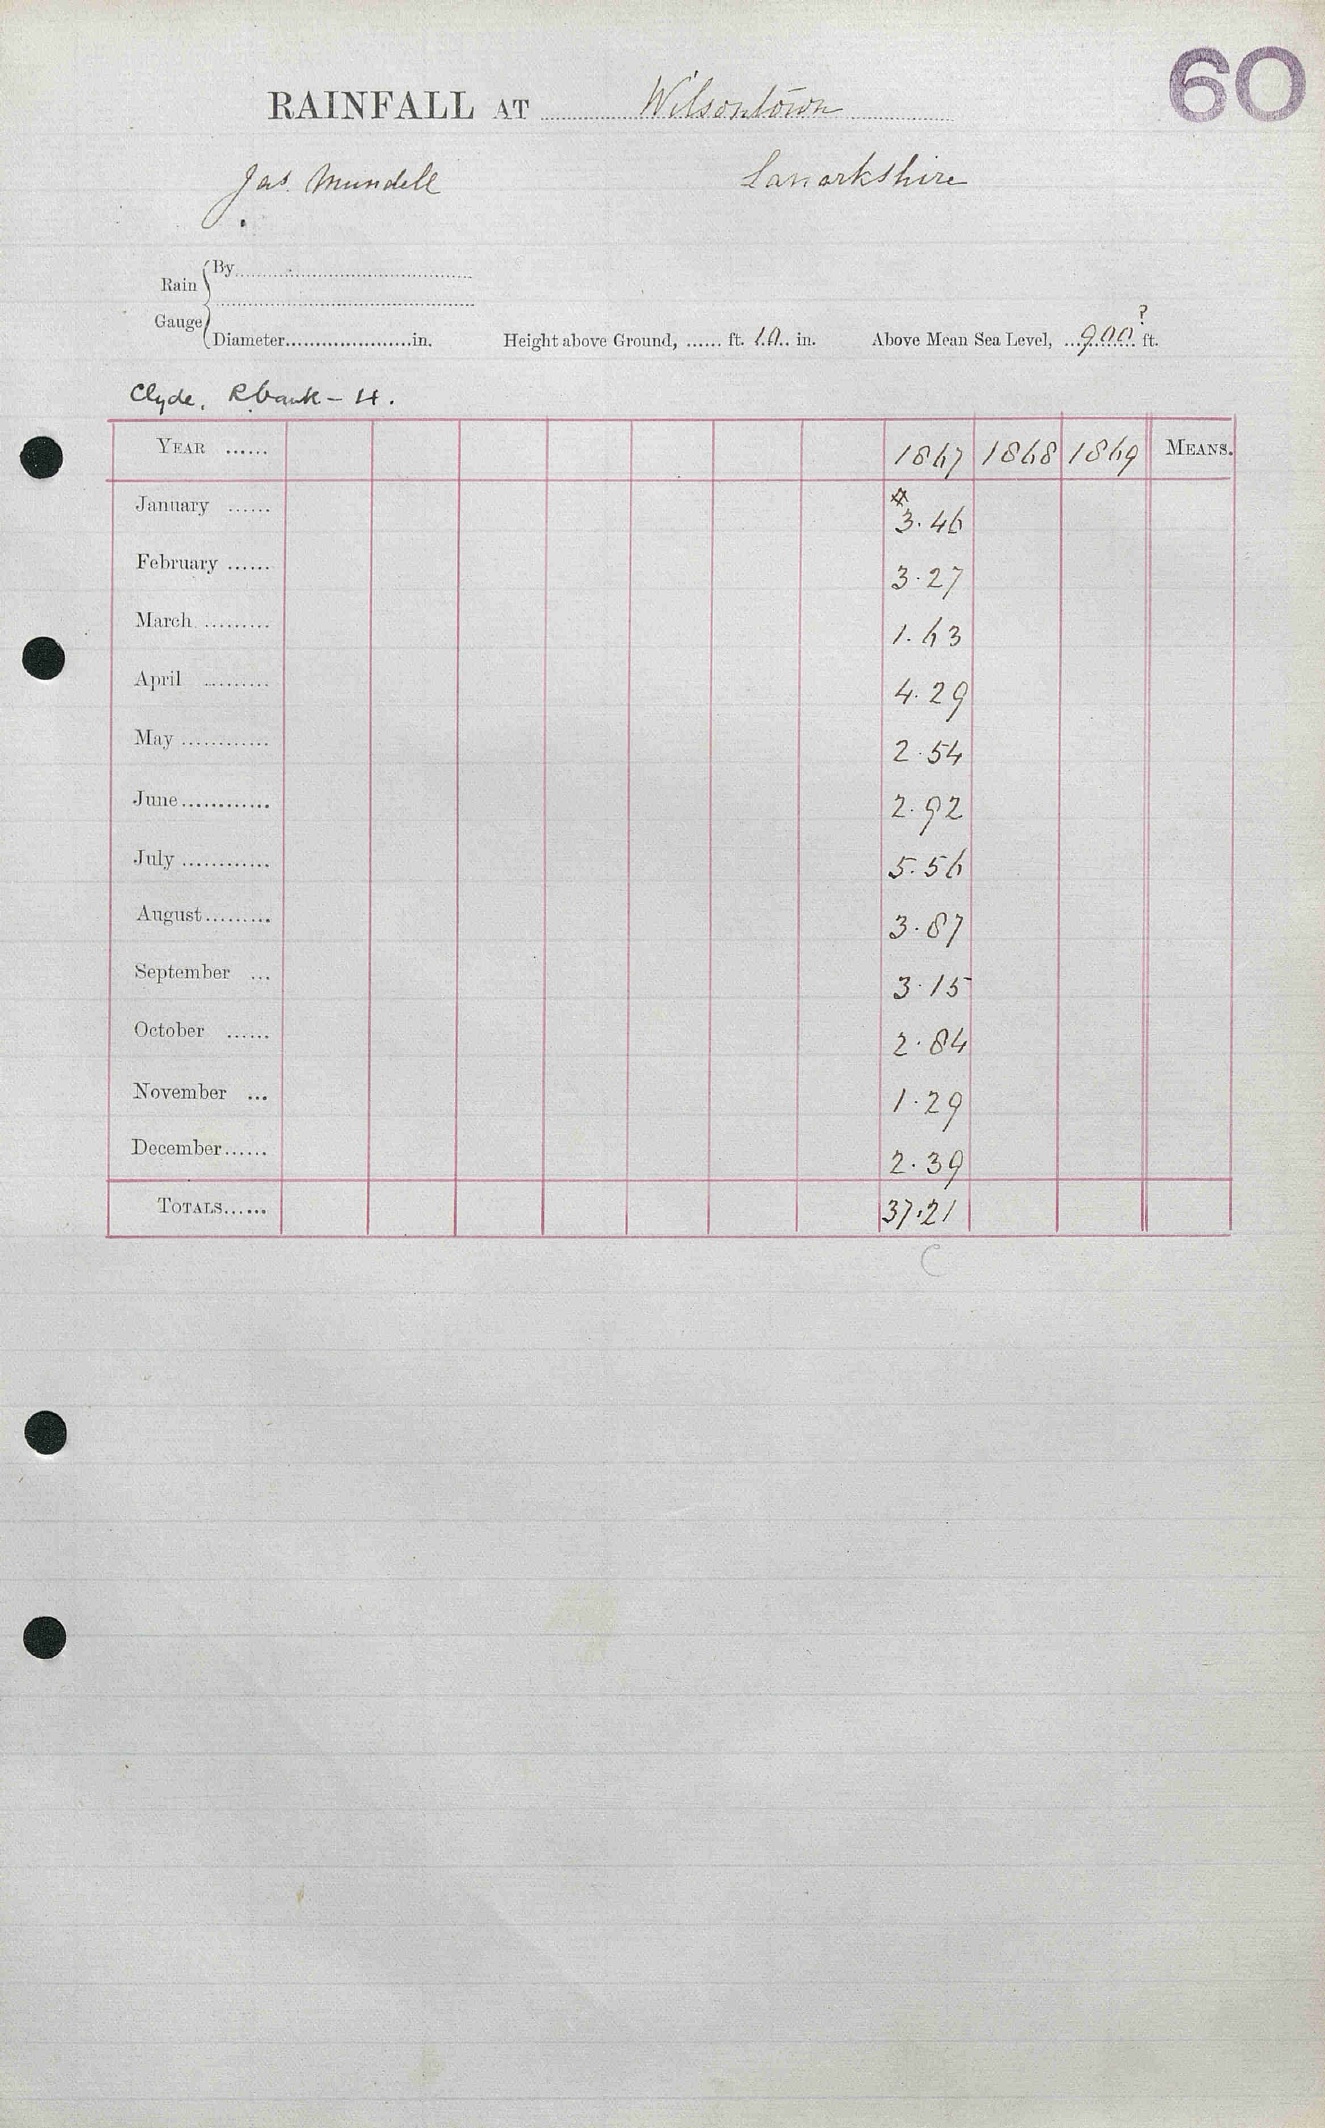 60
RAINFALL AT Wilsontown
Jas. Mundell Lanarkshire
Rain Gauge
By
Diameter in. Height above Ground, ...... ft. 10 in. Above Mean Sea Level, 900? ft.
Clyde. Rbank - H.
YEAR ...... 1867 1868 1869 MEANS.
January ...... * 3.46
February ...... 3.27
March ......... 1.63
April .......... 4.29
May ............ 2.54
June............ 2.92
July ............ 5.56
August......... 3.87
September ... 3.15
October ...... 2.84
November ... 1.29
December...... 2.39
TOTALS...... 37.21
C